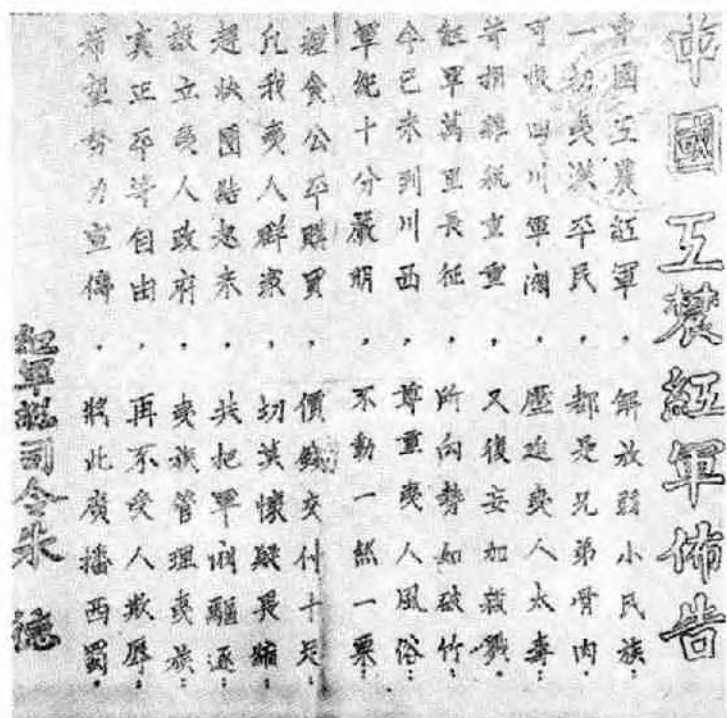 中國工農紅軍佈告
中國工農紅軍，解放弱小民族；
一切夷漢平民，都是兄弟骨肉。
可恨四川軍閥，壓迫夷人太毒；
苛捐雜稅重重，又復妄加殺戮。
紅軍萬里長征，所向勢如破竹；
今已來到川西，尊重夷人風俗；
軍紀十分嚴明，不動一絲一粟；
糧食公平購買，價錢交付十足；
凡我夷人群衆，切莫懷疑畏縮；
趕快團結起來，共把軍閥驅逐；
設立夷人政府，夷族管理夷族；
真正平等自由，再不受人欺辱；
希望努力宣傳，將此廣播西蜀。
紅軍總司令朱德